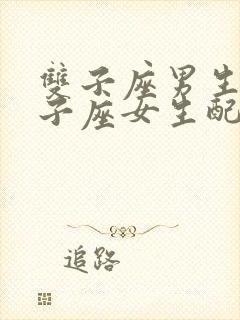 雙子座男生
子座女生配
追路